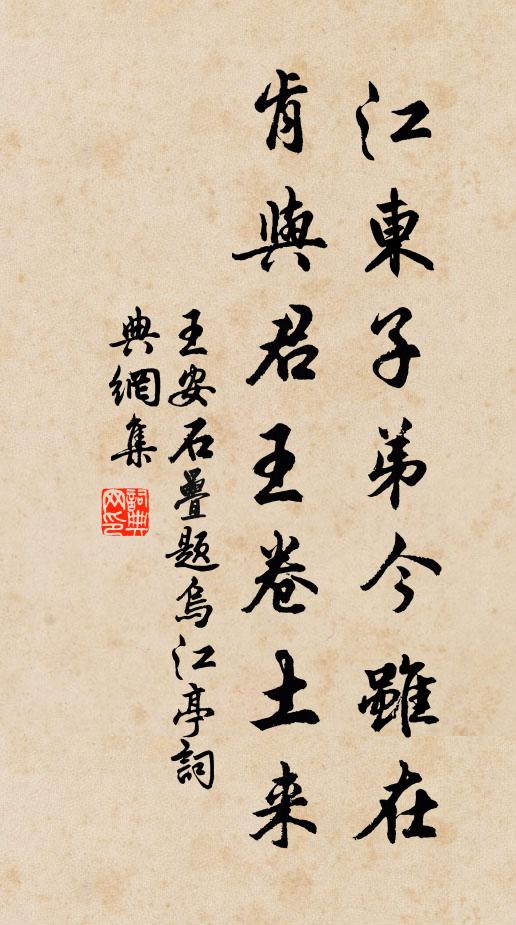 江東子弟今雖在
肯與君王卷土来
王安石疊题烏江亭詞
典網集
詞典网印